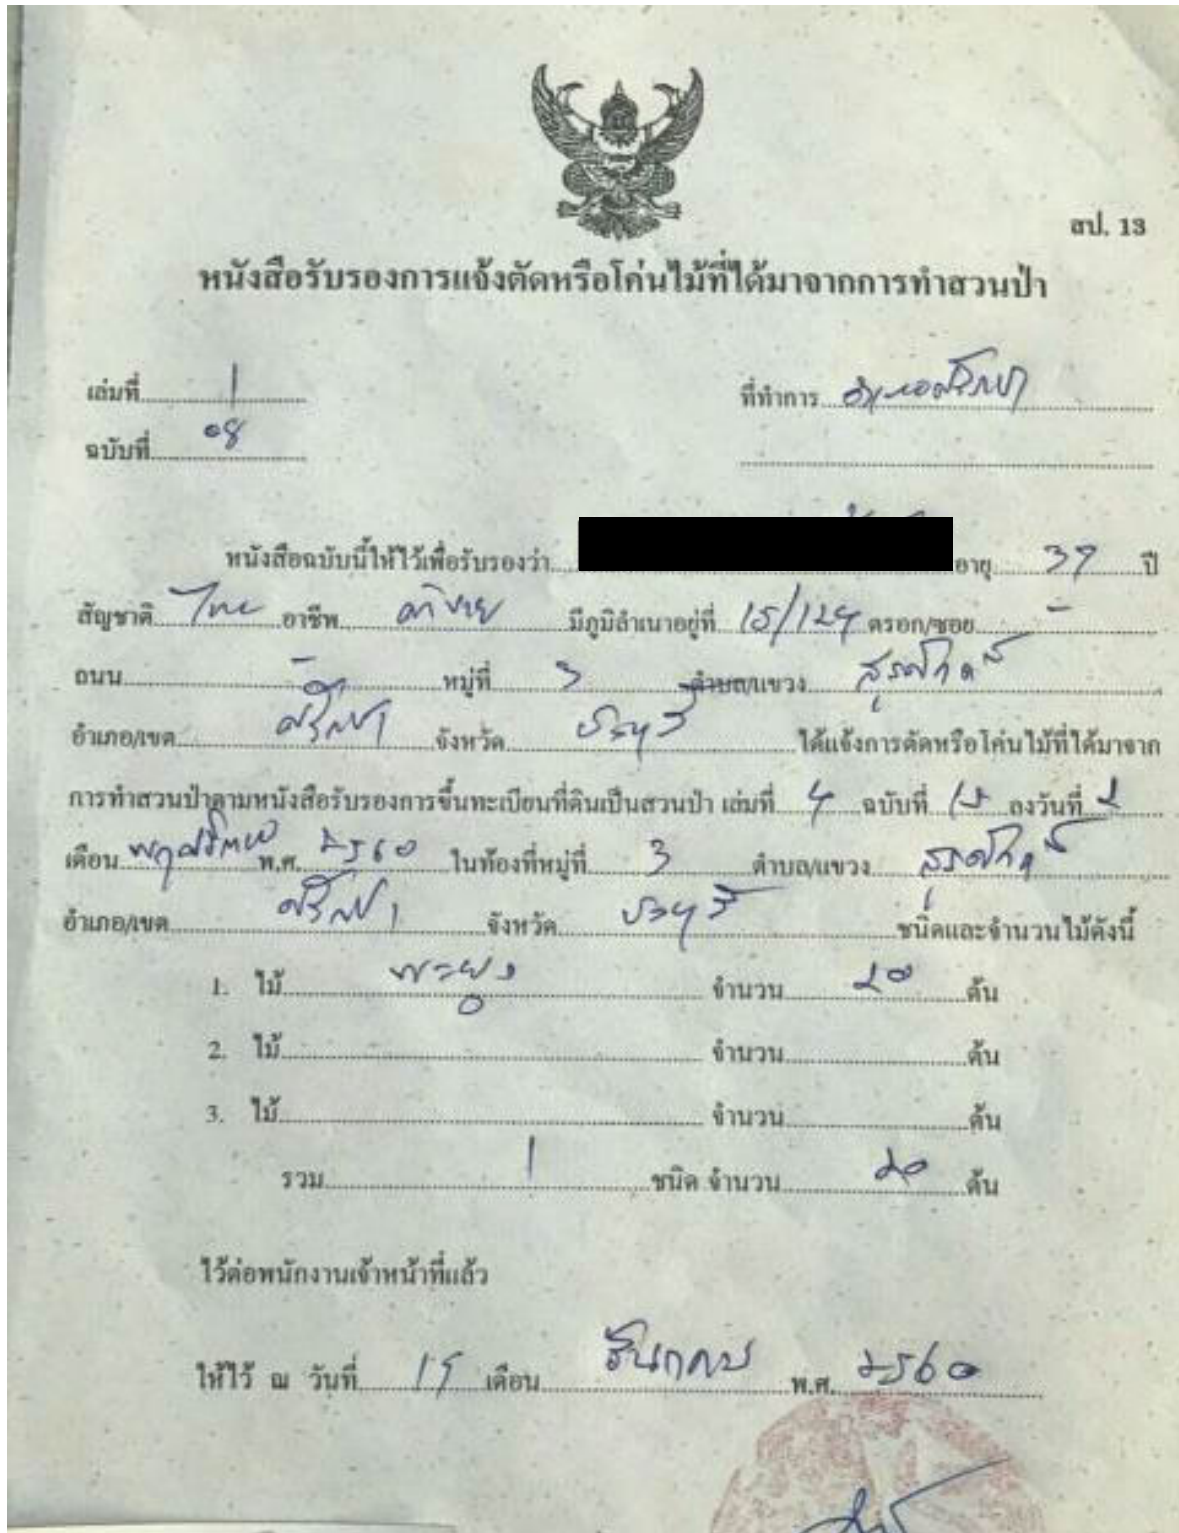 สป. 13
หนังสือรับรองการแจ้งตัดหรือโค่นไม้ที่ได้มาจากการทำสวนป่า
เล่มที่ 1 ที่ทำการ อำเภอศรีราชา
ฉบับที่ 08
หนังสือฉบับนี้ให้ไว้เพื่อรับรองว่า อายุ 37 ปี
สัญชาติ ไทย อาชีพ ค้าขาย มีภูมิลำเนาอยู่ที่ ตรอก/ซอย -
ถนน - หมู่ที่ 3 ตำบล/แขวง สุรศักดิ์
อำเภอ/เขต ศรีราชา จังหวัด ชลบุรี ได้แจ้งการตัดหรือโค่นไม้ที่ได้มาจาก
การทำสวนป่าตามหนังสือรับรองการขึ้นทะเบียนที่ดินเป็นสวนป่า เล่มที่ 4 ฉบับที่ ลงวันที่ 2
เดือน พฤศจิกายน พ.ศ. 2560 ในท้องที่หมู่ที่ 3 ตำบล/แขวง สุรศักดิ์
อำเภอ/เขต ศรีราชา จังหวัด ชลบุรี ชนิดและจำนวนไม้ดังนี้
1. ไม้ พะยูง จำนวน 20 ต้น
2. ไม้ จำนวน ต้น
3. ไม้ จำนวน ต้น
รวม 1 ชนิด จำนวน 20 ต้น
ไว้ต่อพนักงานเจ้าหน้าที่แล้ว
ให้ไว้ ณ วันที่ 15 เดือน ธันวาคม พ.ศ. 2560